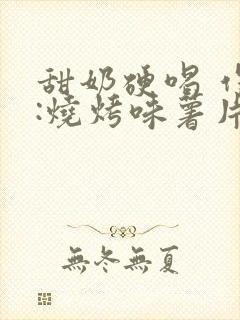 甜奶硬唱
:燒烤味薯片
無冬無夏